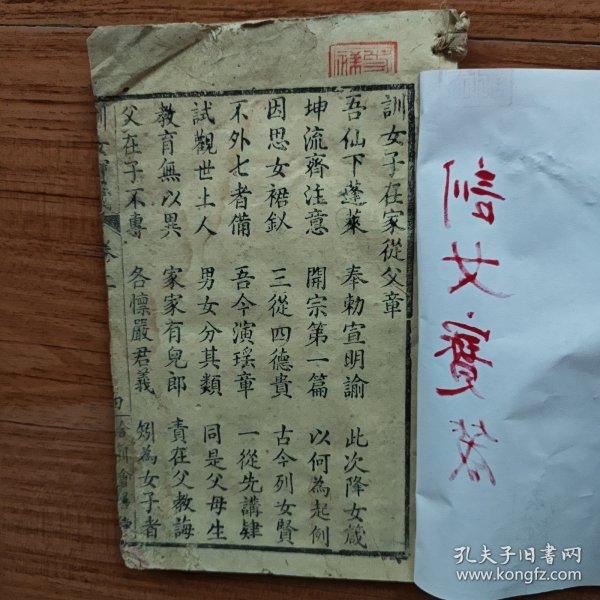 訓女子在家從父章
吾仙下蓬萊 奉勅宣明諭 此次降女箴
坤流齊注意 開宗第一篇 以何為起例
因思女裙釵 三從四德貴 古今列女賢
不外七者備 吾今演瑤章 一從先講肄
試觀世上人 男女分其類 同是父母生
教育無以異 家家有兒郎 責在父教誨
父在子不專 各懍嚴君義 矧為女子者
訓女寶箴 卷一
四
信女寶箴
孔夫子旧书网
www.kongfz.com